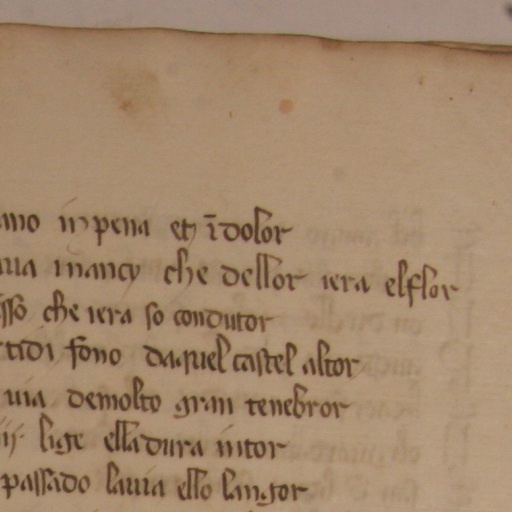 ano in pena et ī dolor
ua inançy che dellor iera elflor
sso che iera so condutor
tidi fono daquel castel altor
uia demolto gran tenebror
iij· lige elladura intor
passado lauia ello langor